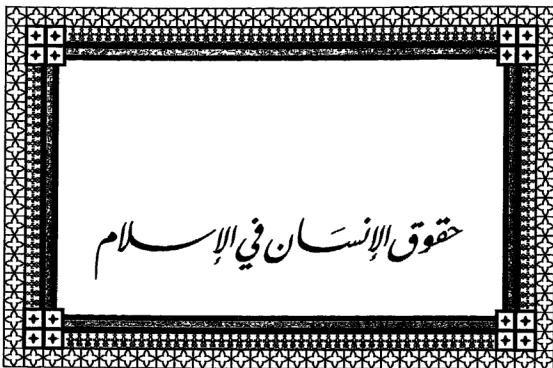 حقوق الإنسَان في الإسلام